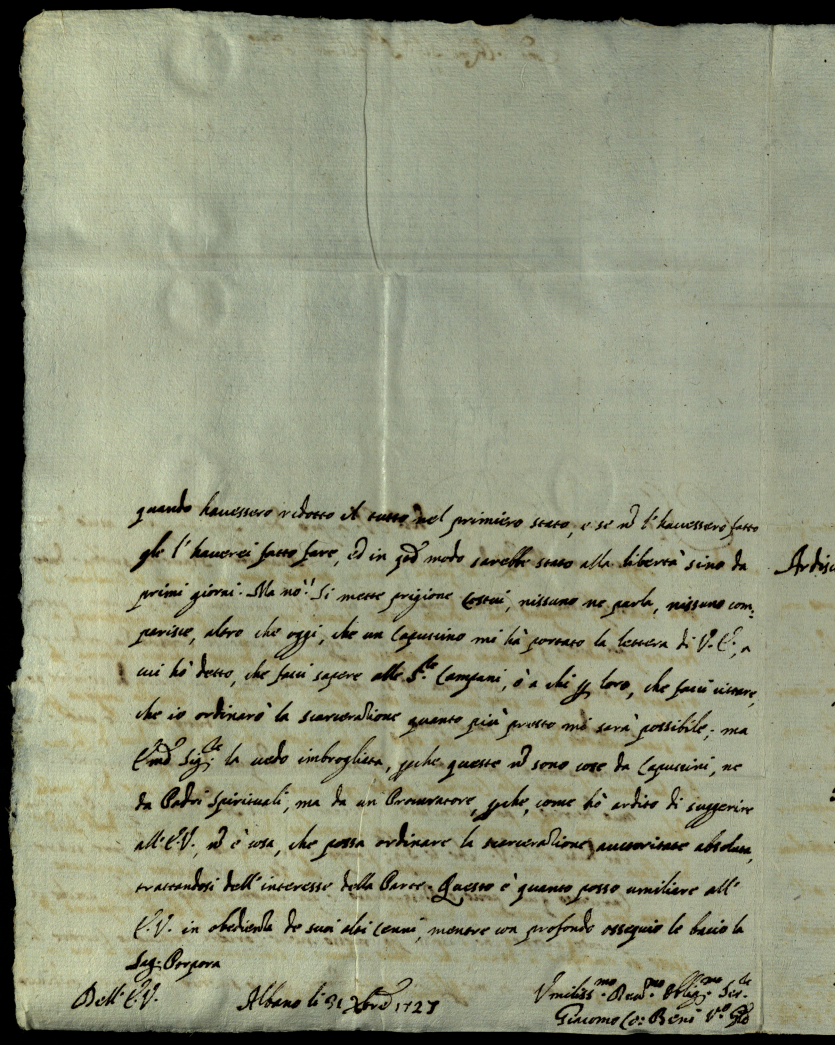 quando havessero ridotto il tutto nel primiero stato, e se ñ l'havessero fatto
gle l'haverei fatto fare, ed in modo sarebbe stato alla libertà sino da
primi giorni. Ma nò! Si mette prigione Costui, nissuno ne parla, nissuno com=
parisce, altro che oggi, che un Capuccino mi hà portato la lettera di V. E., a
cui hò detto, che facci sapere alle S.re Campani, ò a chi p loro, che facci citare,
che io ordinarò la scarcerazione quanto più presto mi sarà possibile; ma
Em̃o Sig.re la vedo imbrogliata, pche queste ñ sono cose da Capuccini, ne
da Padri Spirituali, ma da un Procuratore, pche, come hò ardito di suggerire
all'E.V., ñ è cosa, che possa ordinare la scarcerazione auctoritate absoluta,
trattandosi dell'interesse della Parte. Questo è quanto posso umiliare all'
E.V. in obedienza de suoi alti cenni, mentre con profondo ossequio le bacio la
Sag: Porpora
Dell'E.V. Albano li 31 Xbre 1727 Umiliss.mo Dev.mo Obblig.mo
Giacomo Co: Beni
Ardisc